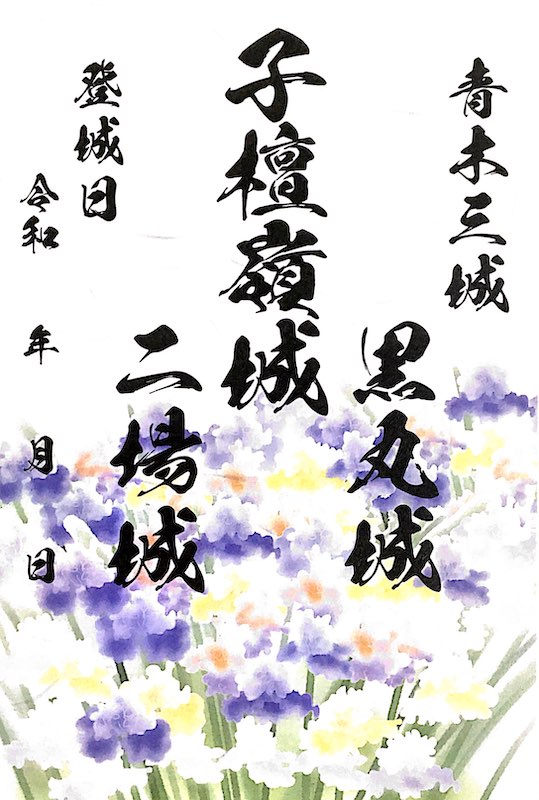 青木三城
黒丸城
子檀嶺城
二場城
登城日
令和 年 月 日